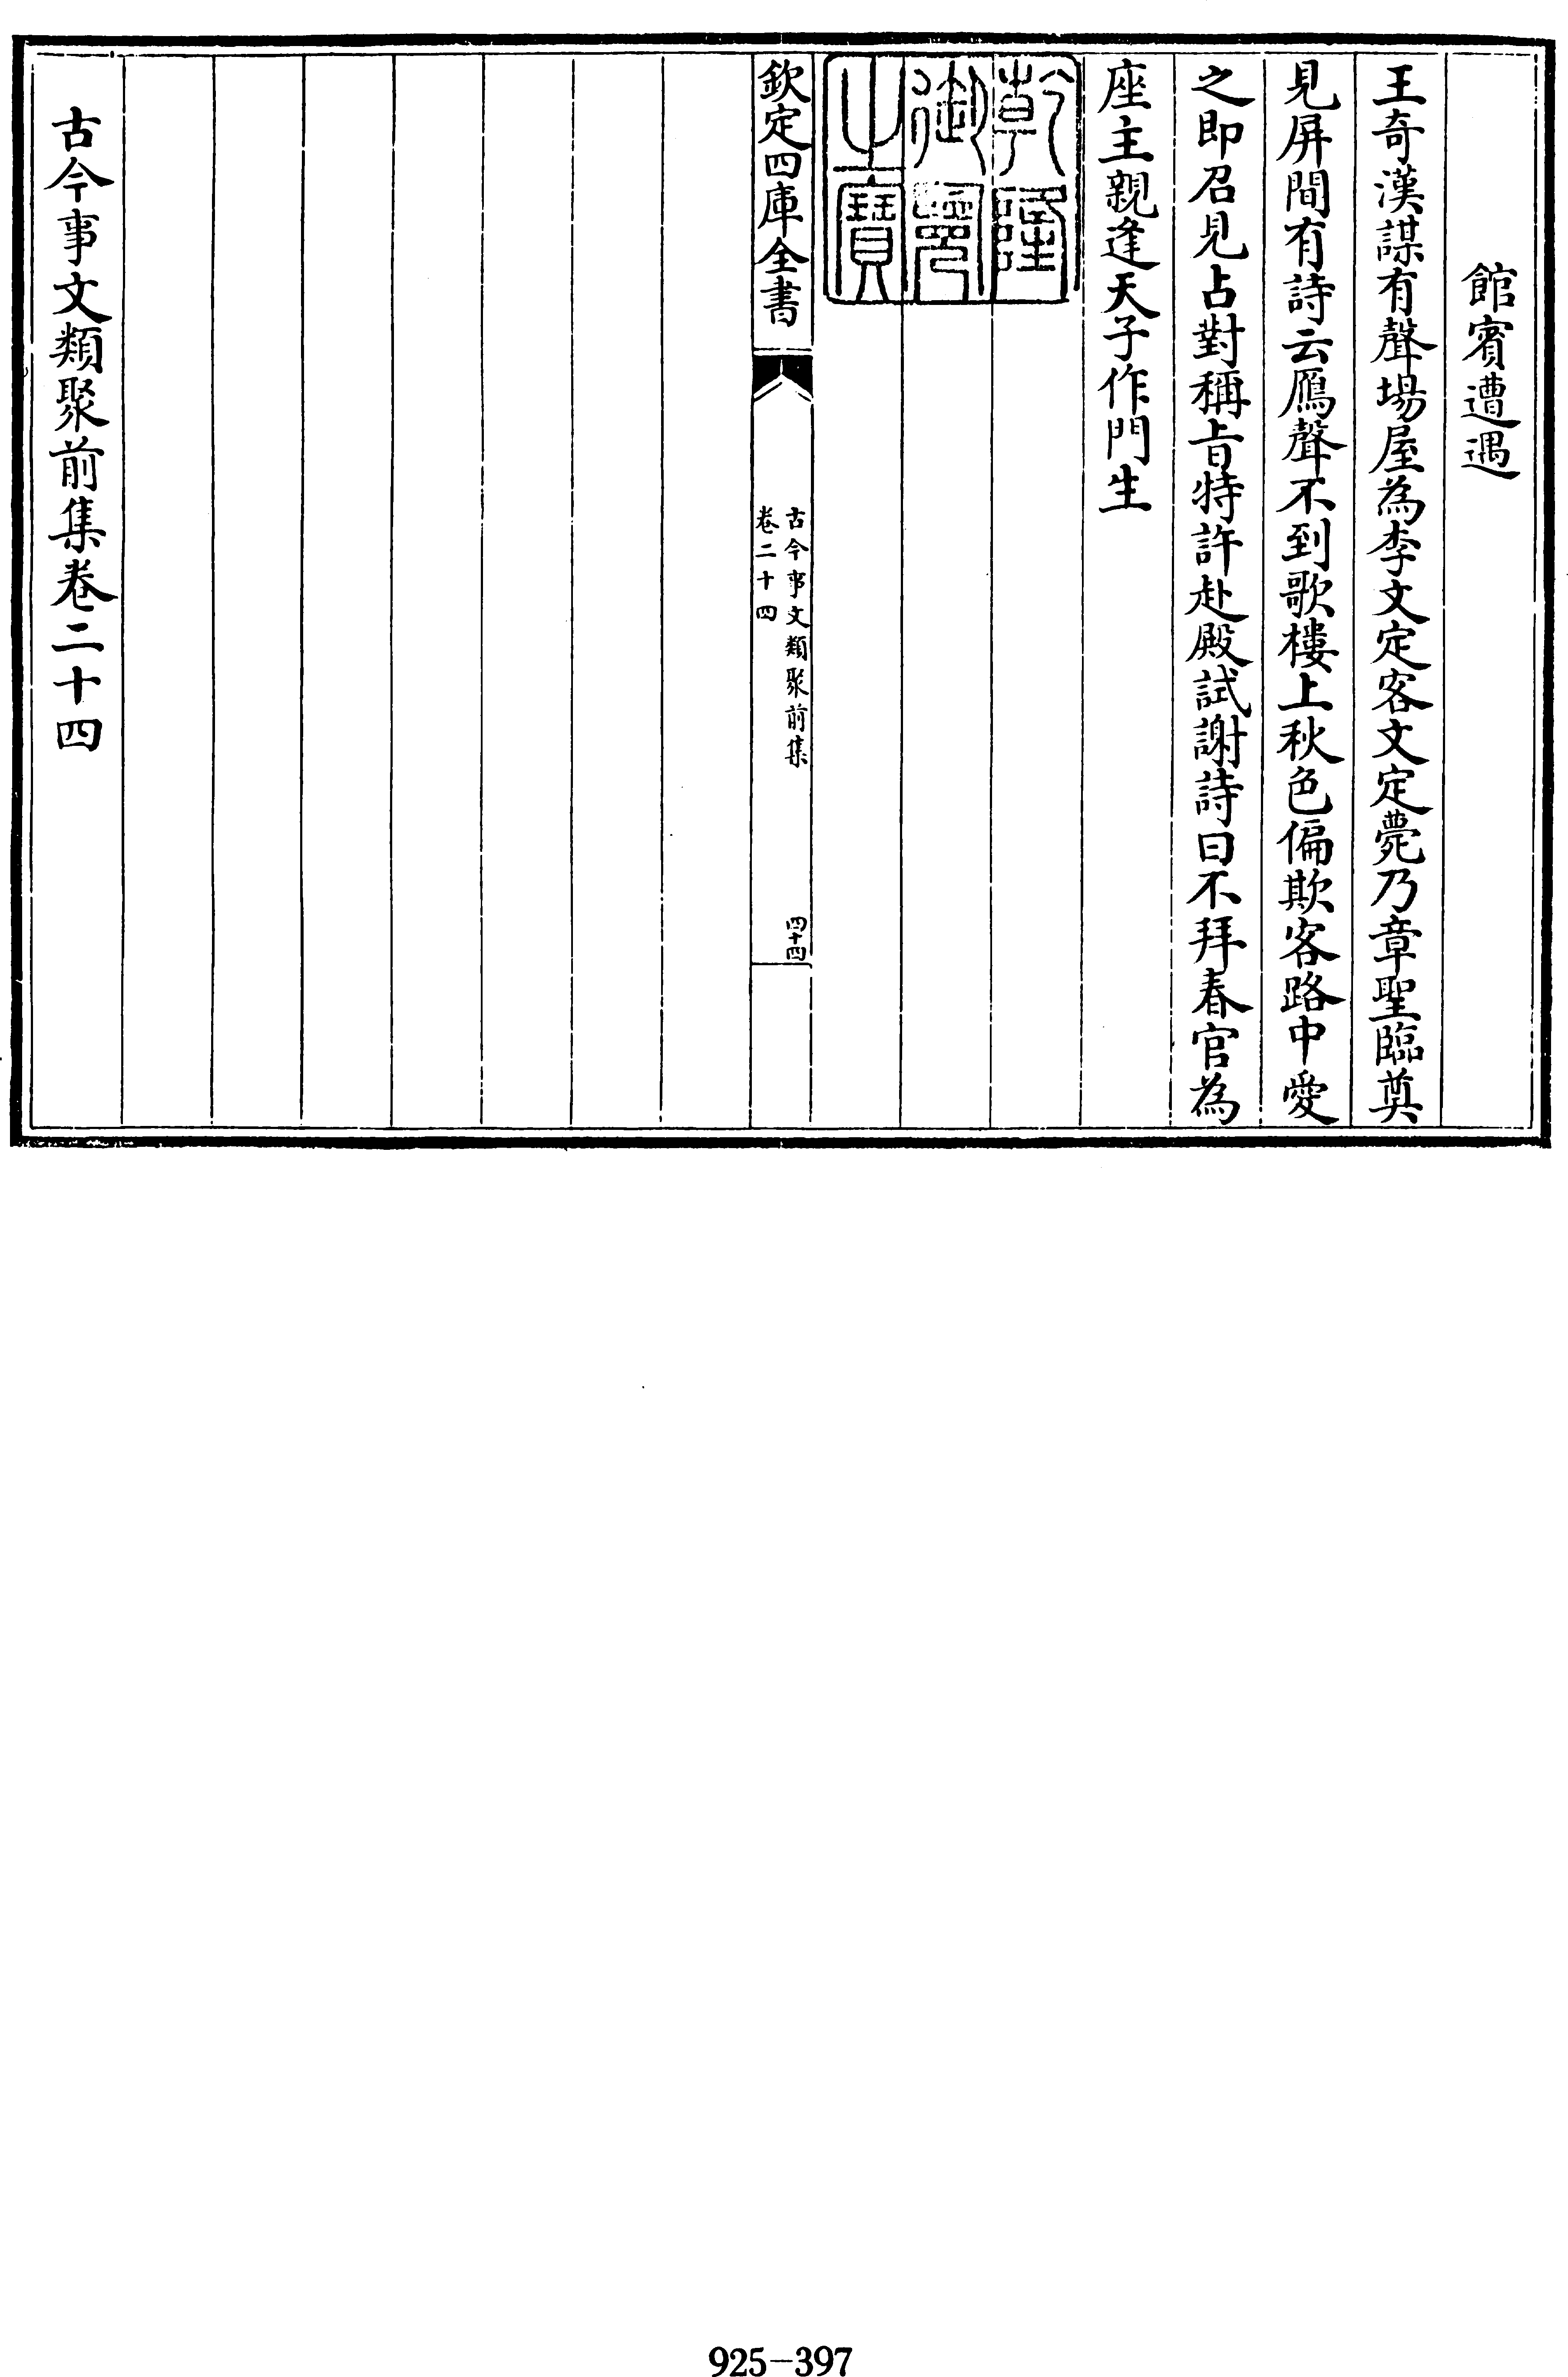 館賓遭遇
王奇漢謀有聲場屋為李文定客文定薨乃章聖臨奠
見屏間有詩云鴈聲不到歌樓上秋色偏欺客路中愛
之即召見占對稱㫖特許赴殿試謝詩曰不拜春官為
座主親逢天子作門生
乾隆御覽之寶
欽定四庫全書
古今事文類聚前集
卷二十四
四十四
古今事文類聚前集卷二十四
925-397